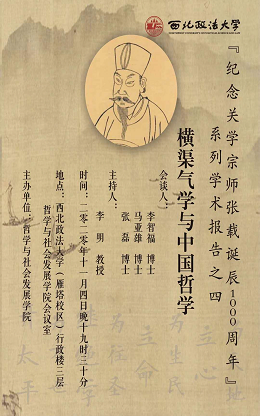 西北政法大学
『纪念关学宗师张载诞辰1000周年』
系列学术报告之四
横渠气学与中国哲学
会谈人:
李智福 博士
马亚雄 博士
张磊 博士
主持人:
李明 教授
时间:二〇二〇年十一月四日晚十九时三十分
地点:西北政法大学(雁塔校区)行政楼三层
哲学与社会发展学院会议室
主办单位:哲学与社会发展学院